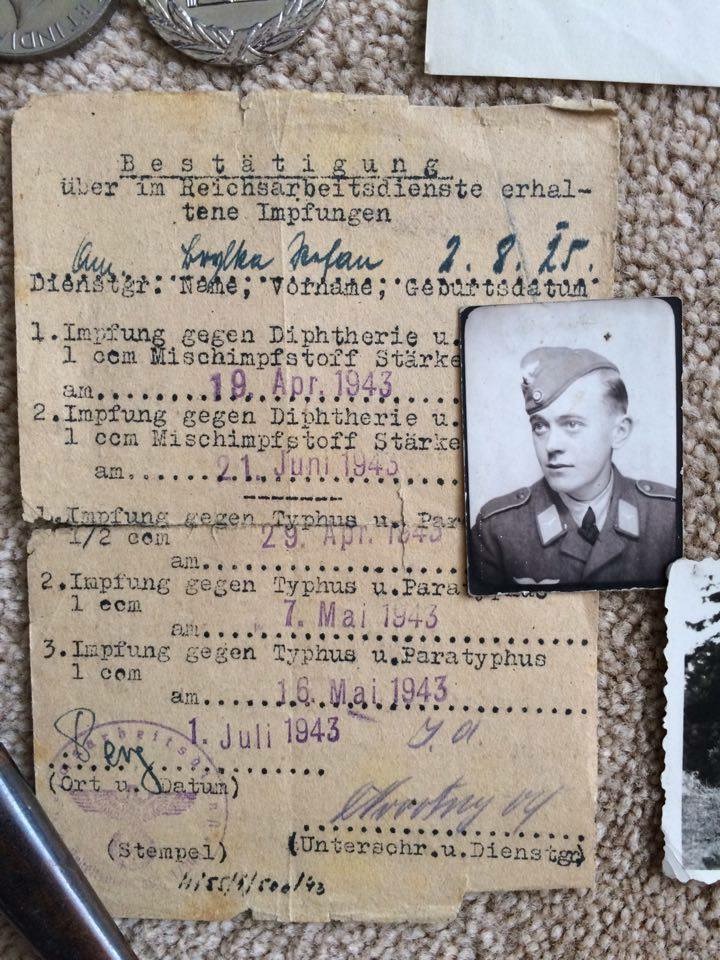 ET INDI
Bestätigung
über im Reichsarbeitsdienste erhal-
tene Impfungen
Stefan 2. 8. 25.
Dienstgr: Name, Vorname, Geburtsdatum
1.Impfung gegen Diphtherie u.
1 ccm Mischimpfstoff Stärke
am 19. Apr. 1943
2.Impfung gegen Diphtherie u.
1 ccm Mischimpfstoff Stärke
am 21. Juni 1943
1.Impfung gegen Typhus u. Par
1/2 ccm 29. Apr. 1943
am
2.Impfung gegen Typhus u.Paratyphus
1 ccm 7. Mai 1943
am
3.Impfung gegen Typhus u.Paratyphus
1 ccm
am 16. Mai 1943
Berg 1. Juli 1943 I. A.
(Ort u. Datum)
(Stempel) (Unterschr.u.Dienstgr)